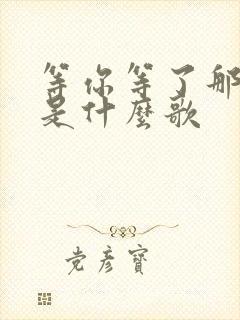 等你等了那
是什麼歌
党彦寶